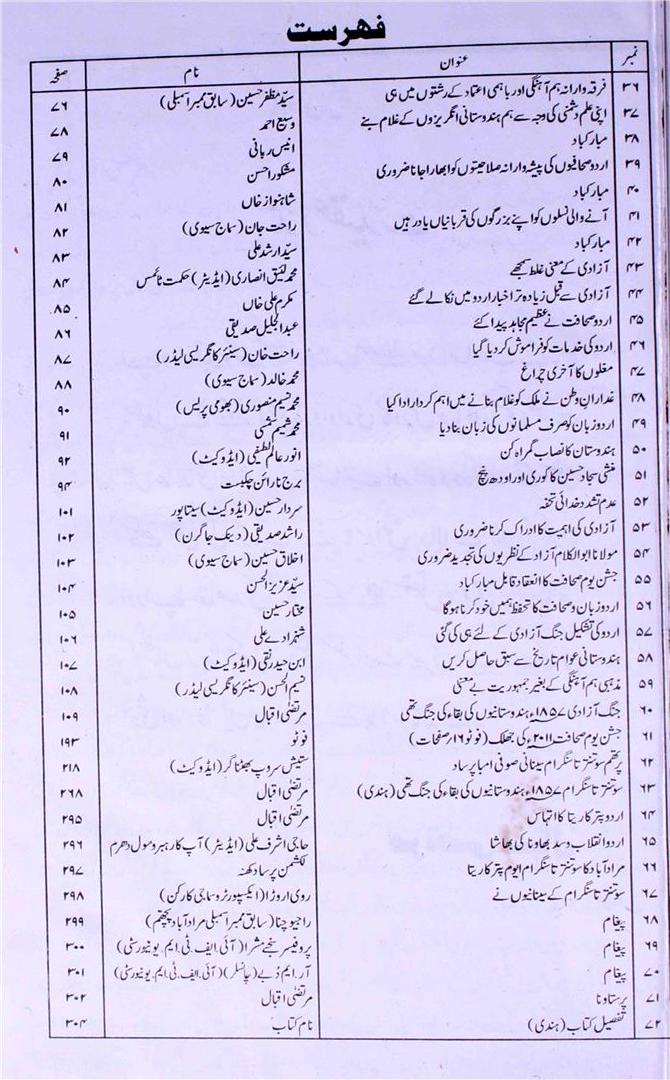 فہرست
نمبر عنوان نام صفحہ
۳۶ فرقہ وارانہ ہم آہنگی اور باہمی اعتماد کے رشتوں میں ہی سیّد مظفر حسین (سابق ممبر اسمبلی) ۷۶
۳۷ اپنی علم دشمنی کی وجہ سے ہم ہندوستانی انگریزوں کے غلام بنے وسیع احمد ۷۸
۳۸ مبارکباد انیس ربانی ۷۹
۳۹ اردو صحافیوں کی پیشہ وارانہ صلاحیتوں کو ابھارا جانا ضروری مشکور احسن ۸۰
۴۰ مبارکباد شاہنواز خاں ۸۱
۴۱ آنے والی نسلوں کو اپنے بزرگوں کی قربانیاں یاد رہیں راحت جان (سماج سیوی) ۸۲
۴۲ مبارکباد سیّد ارشد علی ۸۳
۴۳ آزادی کے معنی غلط سمجھے محمد لئیق انصاری (ایڈیٹر) حکمت ٹائمس ۸۴
۴۴ آزادی سے قبل زیادہ تر اخبار اردو میں نکالے گئے مکرم علی خاں ۸۵
۴۵ اردو صحافت نے عظیم مجاہد پیدا کئے عبدالجلیل صدیقی ۸۶
۴۶ اردو کی خدمات کو فراموش کر دیا گیا راحت خان (سینئر کانگریسی لیڈر) ۸۷
۴۷ مغلوں کا آخری چراغ محمد خالد (سماج سیوی) ۸۸
۴۸ غداران وطن نے ملک کو غلام بنانے میں اہم کردار ادا کیا محمد نسیم منصوری (بھوی پریس) ۹۰
۴۹ اردو زبان کو صرف مسلمانوں کی زبان بنا دیا محمد شمیم کشی ۹۱
۵۰ ہندوستان کا نصاب گمراہ کن انور عالم لطیفی (ایڈوکیٹ) ۹۲
۵۱ منشی سجاد حسین کاکوری اور اودھ پنچ برج نارائن چکبست ۹۴
۵۲ عدم تشدد خدائی تحفہ سردار حسین (ایڈوکیٹ) سیتاپور ۱۰۱
۵۳ آزادی کی اہمیت کا ادراک کرنا ضروری راشد صدیقی (دینک جاگرن) ۱۰۲
۵۴ مولانا ابوالکلام آزاد کے نظریوں کی تجدید ضروری اخلاق حسین (سماج سیوی) ۱۰۳
۵۵ جشن یوم صحافت کا انعقاد قابل مبارکباد سیّد عزیز الحسن ۱۰۴
۵۶ اردو زبان و صحافت کا تحفظ ہمیں خود کرنا ہوگا مختار حسین ۱۰۵
۵۷ اردو کی تشکیل جنگ آزادی کے لئے ہی کی گئی شہزادے علی ۱۰۶
۵۸ ہندوستانی عوام تاریخ سے سبق حاصل کریں ابن حیدر نقی (ایڈوکیٹ) ۱۰۷
۵۹ مذہبی ہم آہنگی کے بغیر جمہوریت بے معنی نسیم الحسن (سینئر کانگریسی لیڈر) ۱۰۸
۶۰ جنگ آزادی ۱۸۵۷ء ہندوستانیوں کی بقاء کی جنگ تھی مرتضیٰ اقبال ۱۰۹
۶۱ جشن یوم صحافت ۲۰۱۱ء کی جھلک (فوٹو ۱۶ صفحات) فوٹو ۱۹۳
۶۲ پرتھم سوتنترتا سنگرام سینانی صوفی امبا پرساد ستیش سروپ بھٹناگر (ایڈوکیٹ) ۲۱۸
۶۳ سوتنترتا سنگرام ۱۸۵۷ء ہندوستانیوں کی بقاء کی جنگ تھی (ہندی) مرتضیٰ اقبال ۲۶۸
۶۴ اردو پتر کاریتا کا اتہاس مرتضیٰ اقبال ۲۹۵
۶۵ اردو انقلاب و سد بھاونا کی بھاشا حاجی اشرف علی (ایڈیٹر) آپ کا رہبر و سول دھرم ۲۹۶
۶۶ مرادآباد کا سوتنترتا سنگرام ایوم پترکاریتا لکشمن پرساد کھنہ ۲۹۷
۶۷ سوتنترتا سنگرام کے سینانیوں نے روی اروڑا (ایکسپورٹر و سماجی کارکن) ۲۹۸
۶۸ پیغام راجیو چنا (سابق ممبر اسمبلی مرادآباد پچھم) ۲۹۹
۶۹ پیغام پروفیسر سنجے مشرا (آئی.ایف.ٹی.ایم.یونیورسٹی) ۳۰۰
۷۰ پیغام آر.ایم.دُبے (چانسلر) (آئی.ایف.ٹی.ایم.یونیورسٹی) ۳۰۱
۷۱ پرستاونا مرتضیٰ اقبال ۳۰۲
۷۲ تفصیل کتاب (ہندی) نام کتاب ۳۰۴